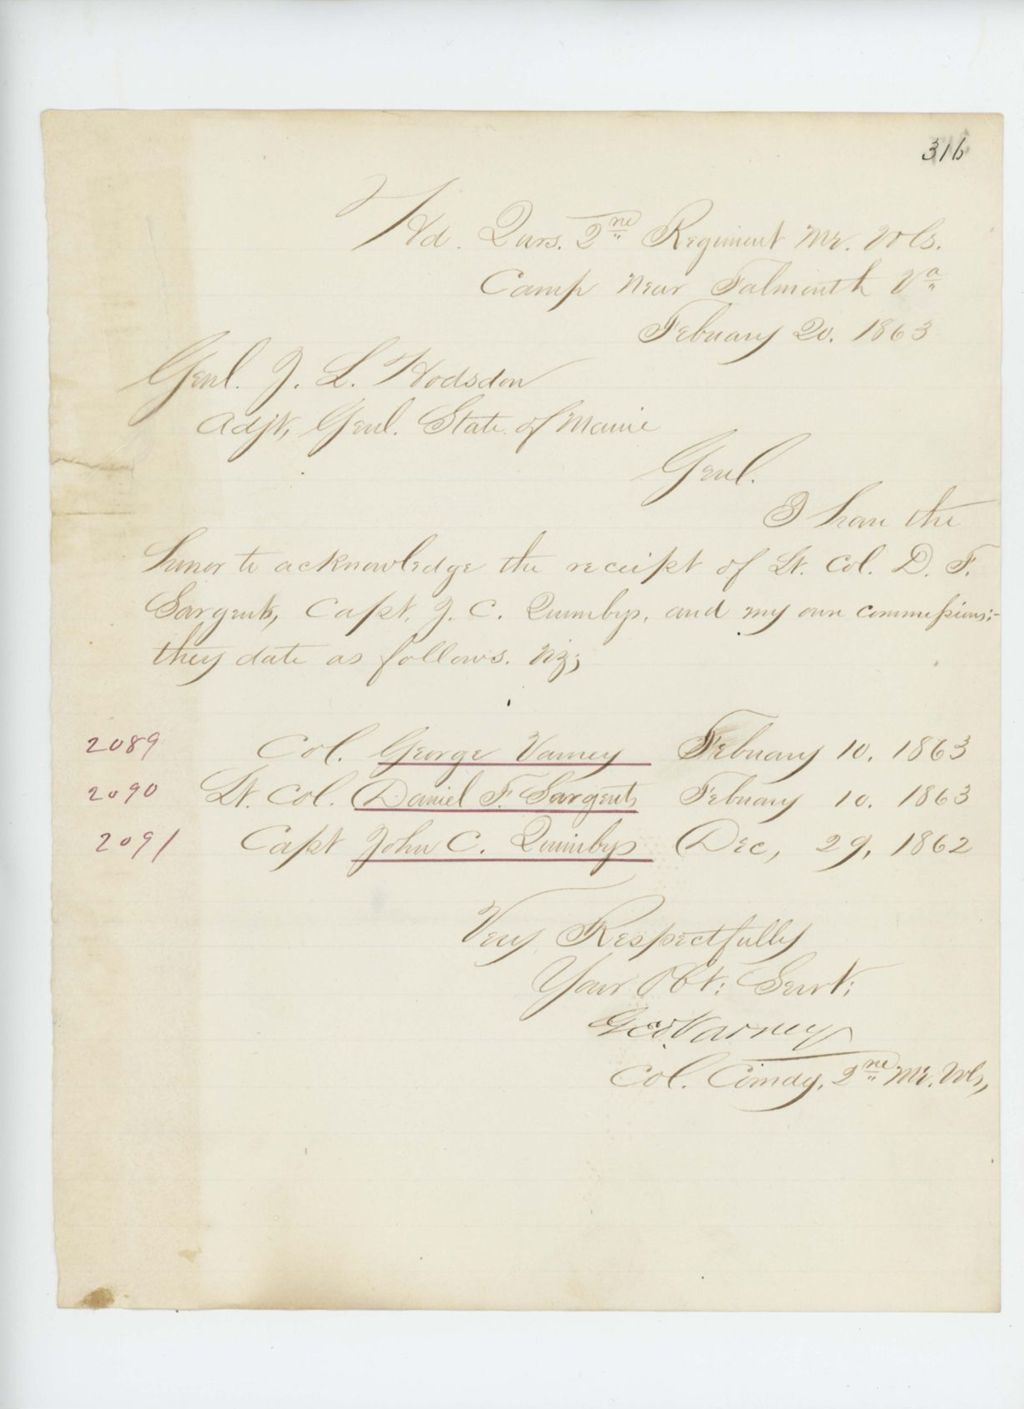 316
Hd. Qurs. 2nd Regiment Me. Vols.
Camp Near Falmouth Va
Febuary 20. 1863
Genl. J. L. Hodsdon
Adjt, Genl. State of Maine
Genl.
I have the
honor to acknowledge the receipt of Lt. Col. D. F.
Sargents, Capt. J. C. Quimbys, and my own commissions:-
they date as follows. viz;
2089 Col. George Varney Febuary 10. 1863
2090 Lt. Col. Daniel F. Sargents Febuary 10. 1863
2091 Capt John C. Quimbys Dec, 29, 1862
Very Respectfully
Your Obt: Servt:
Geo. Varney
Col. Comdg, 2nd Me. Vols,